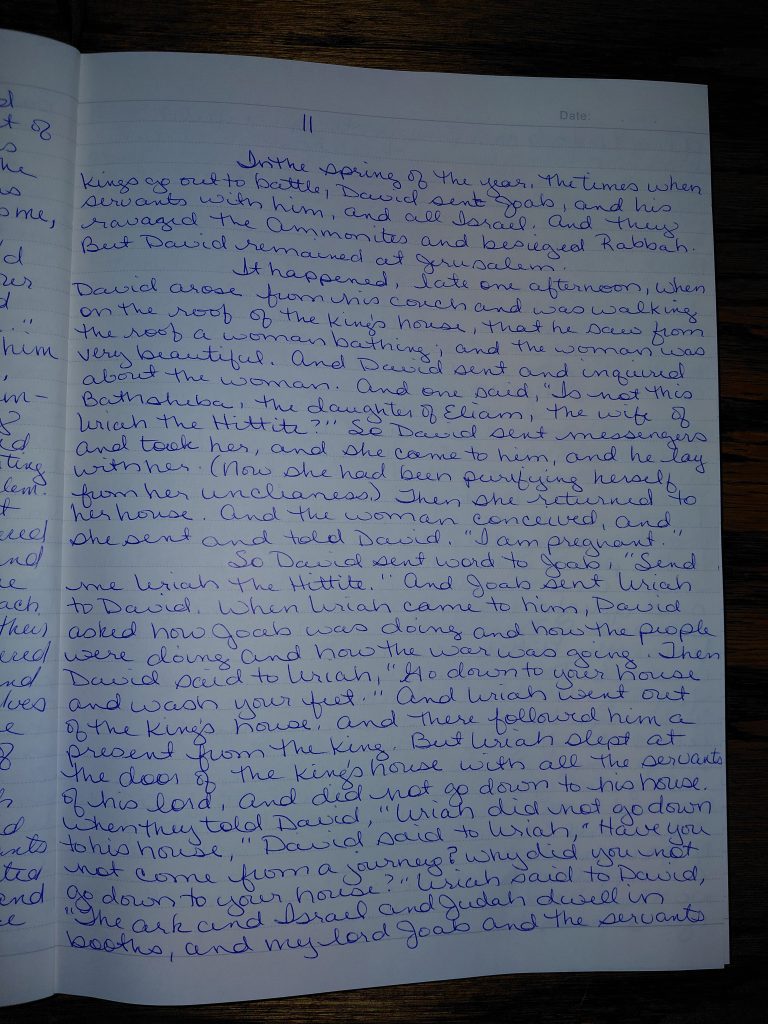 Date:
11
In the spring of the year, the times when
kings go out to battle, David sent Joab, and his
servants with him, and all Israel. And they
ravaged the Ammonites and besieged Rabbah.
But David remained at Jerusalem.
It happened, late one afternoon, when
David arose from his couch and was walking
on the roof of the king's house, that he saw from
the roof a woman bathing; and the woman was
very beautiful. And David sent and inquired
about the woman. And one said, "Is not this
Bathsheba, the daughter of Eliam, the wife of
Uriah the Hittite?" So David sent messengers
and took her, and she came to him, and he lay
with her. (Now she had been purifying herself
from her uncleaness.) Then she returned to
her house. And the woman conceived, and
she sent and told David. "I am pregnant."
So David sent word to Joab, "Send
me Uriah the Hittite." And Joab sent Uriah
to David. When Uriah came to him, David
asked how Joab was doing and how the people
were doing and how the war was going. Then
David said to Uriah, "Go down to your house
and wash your feet." And Uriah went out
of the king's house, and there followed him a
present from the king. But Uriah slept at
the door of the king's house with all the servants
of his lord, and did not go down to his house.
When they told David, "Uriah did not go down
to his house," David said to Uriah, "Have you
not come from a journey? Why did you not
go down to your house?" Uriah said to David,
"The ark and Israel and Judah dwell in
booths, and my lord Joab and the servants